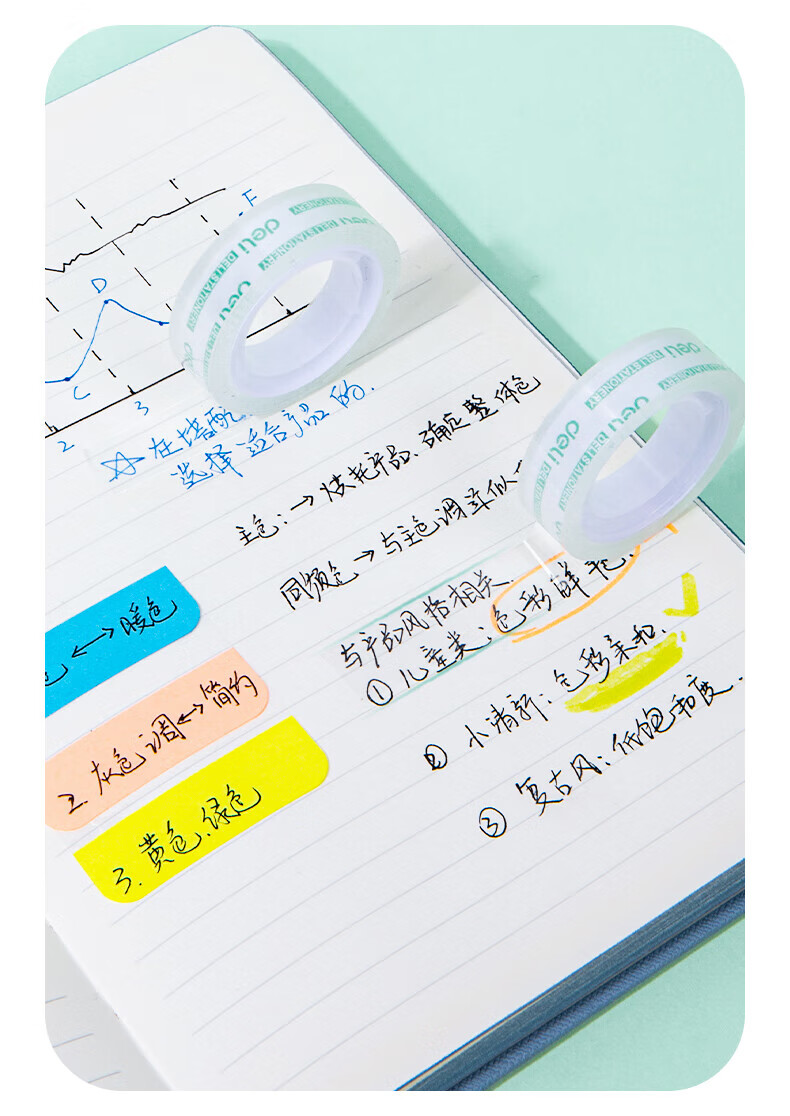 F
D
C
2
3
☆ 在搭配
选择适合产品的.
主色: → 烘托产品、确定整体色
同频色 → 与主色调类似
与产品风格相关.
① 儿童类: 色彩鲜艳.
② 小清新: 色彩柔和.
③ 复古风: 低饱和度.
色 ↔ 暖色
2. 灰色调 ↔ 简约
3. 黄色、绿色
deli DELI STATIONERY
deli DELI STATIONERY
deli DELI STATIONERY
deli DELI STATIONERY